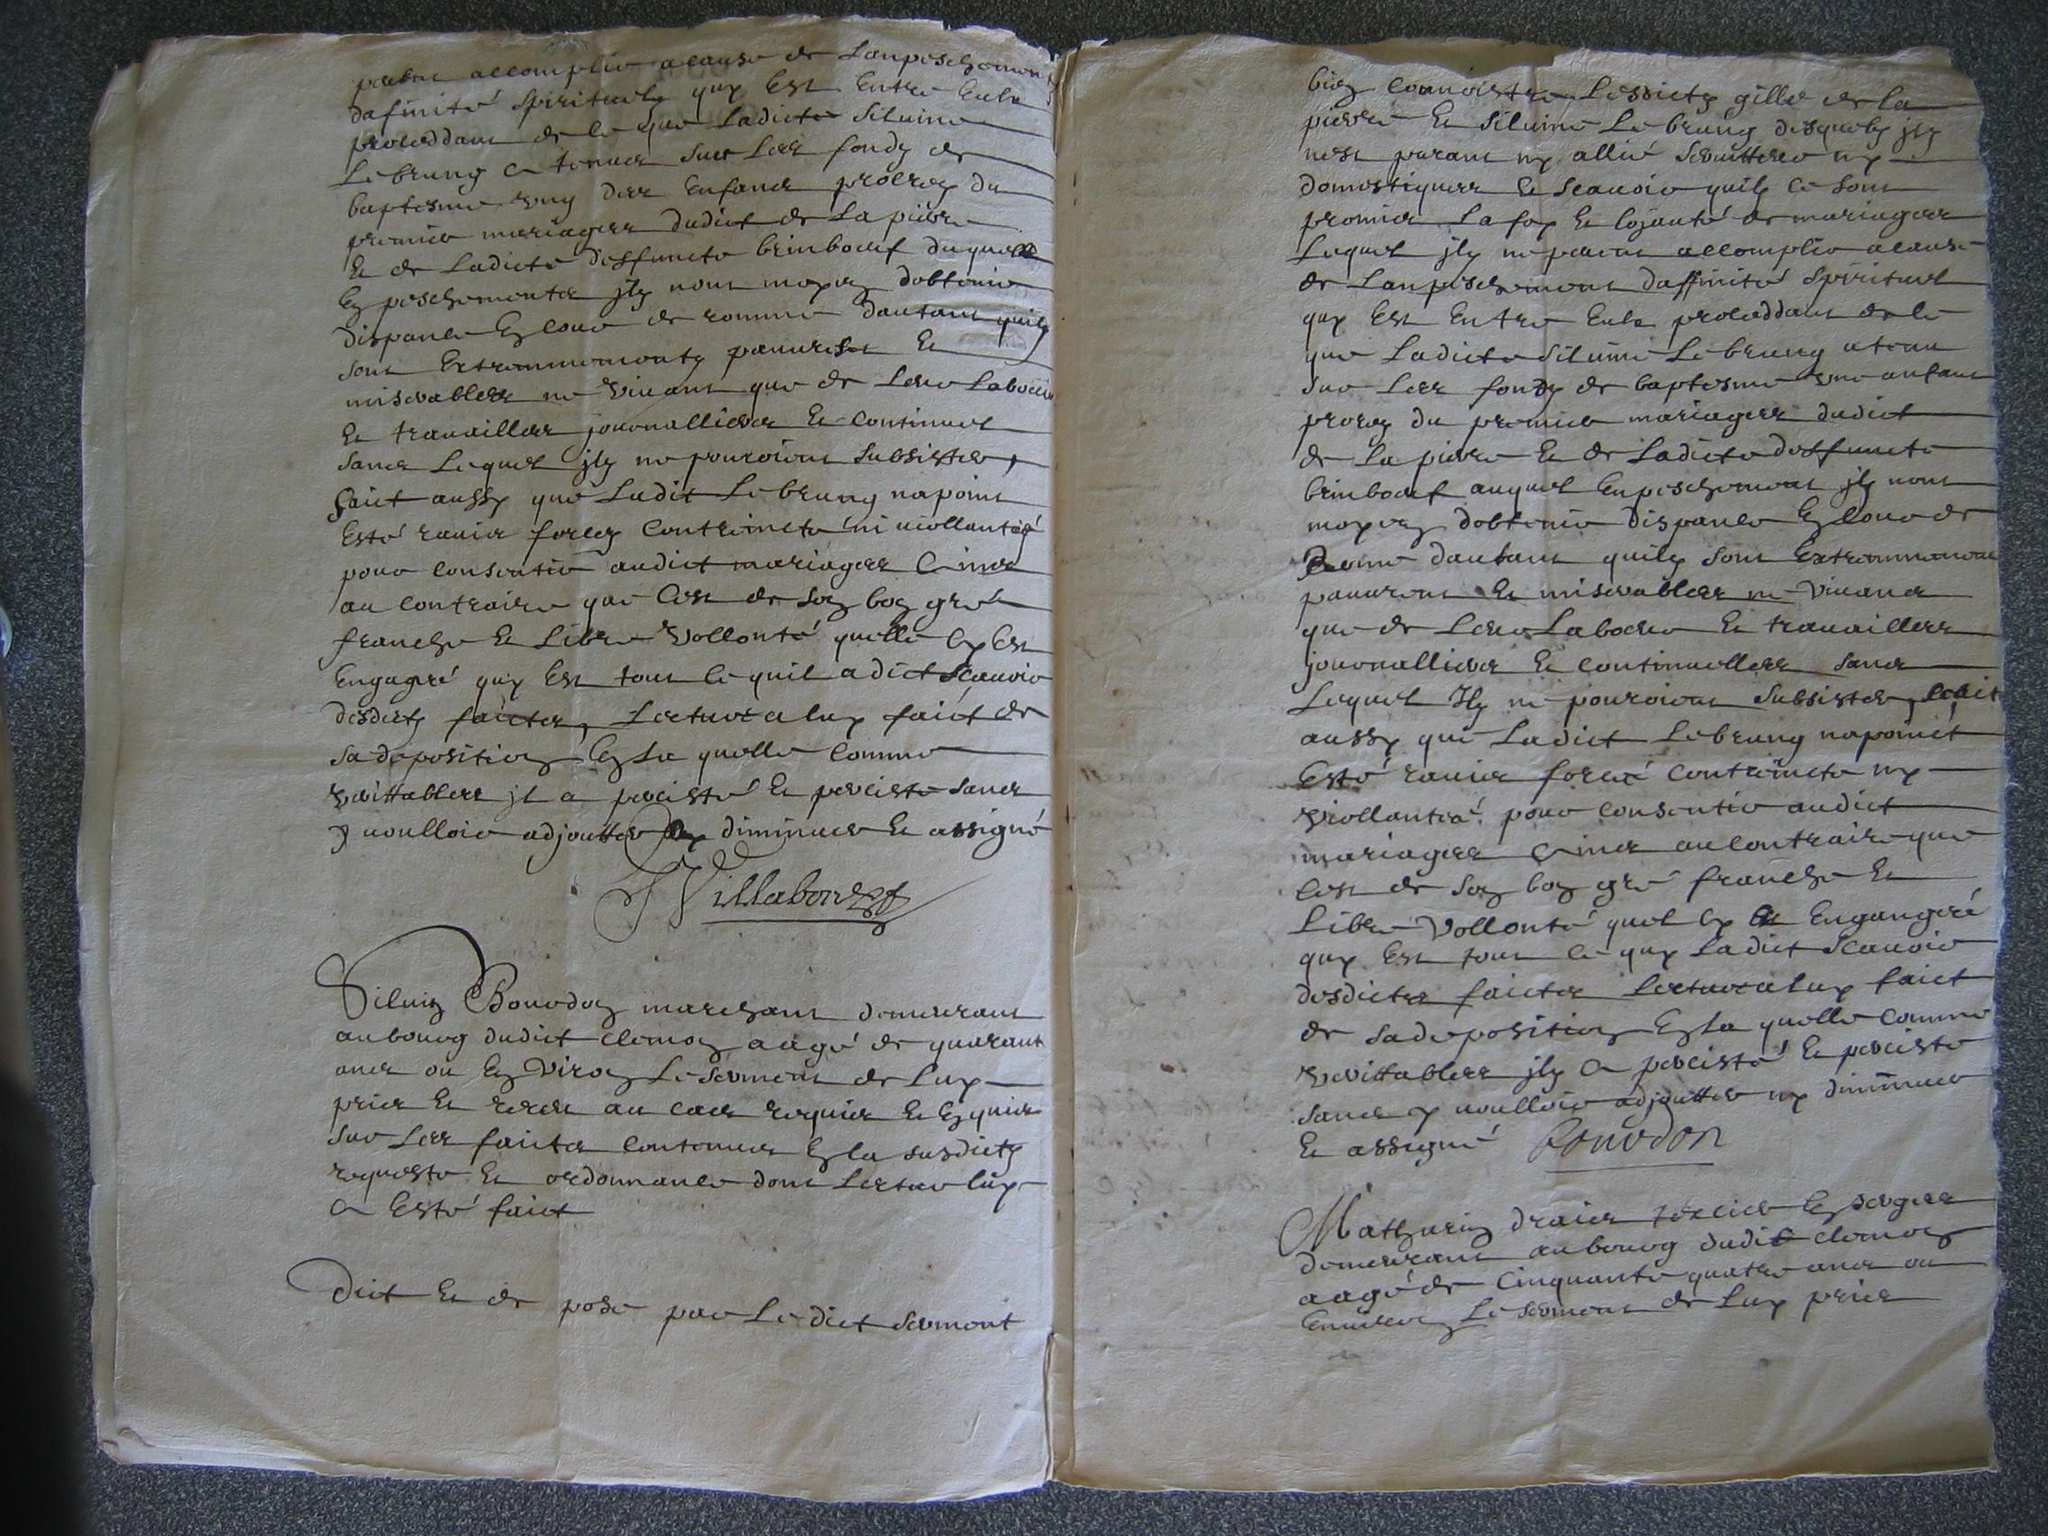 peuvent accomplir a cause de lanpeschement
dafinité spirituel quy est entre eulx
proceddant de ce que ladicte Silvine
Lebrung a tenue sur les fonds de
baptesme ung des enfans procrez du
premier mariages dudict de la pierre
et de ladicte deffuncte brinboeuf duquel
enpeschements ilz nont moyen dobtenir
dispance en cour de romme dautant quilz
sont extremements pauvres et
miserables ne vivant que de leur labeur
et travailles journalliers et continuel
sans lequel ilz ne pouroient subsister,
scait aussy que ladit Lebrung napoint
esté ravie forcez contraincte ni viollantée
pour consentir audict mariages ains
au contraire que cest de son bon gré
franche et libre vollonté quelle cy est
engagée quy est tout ce quil a dict scavoir
desdicts faictes, lecture a luy faict de
sa deposition en la quelle comme
verittables il a percisté et perciste sans
y voulloir adjoutter ny diminuer et a signé
Villabonest
Silvin Bourdon marchant demeurant
au bourg dudict clemon aagé de quarant
ans ou environ le serment de luy
pris et receu au cas requis et enquis
sur les faictes contenus en la susdicts
requeste et ordonnance dont lecture luy
a esté faict
Dict et de pose par le dict serment
bien connoistre lesdicts gille de la
pierre et silvine Lebrung desquels ilz
nest parant ny allié servittere ny
domestiques et scavoir quilz ce sont
promis la foy et loyauté de mariages
lequel ilz ne peuvent accomplir a cause
de lanpeschement daffinité spirituel
quy est entre eulx proceddant de ce
que ladicte silvine Lebrung a tenu
sur les fonds de baptesme une anfant
prorez du premier mariages dudict
de la pierre et de ladicte deffuncte
brinboeuf auquel enpeschement ilz nont
moyen dobtenir dispance en cour de
Rome dautant quilz sont extrememens
pauvrent et miserables ne vivans
que de leur labeur et travailles
journalliers et continuelles sans
lequel ilz ne pouroient subsister, scait
aussy que ladict Lebrung napoinct
esté ravie forcée contraincte ny
viollantée pour consentir audict
mariages ains au contraire que
cest de son bon gré franche et
libre vollonté quel cy est engangeré
quy est tout ce quy ladict scavoir
desdictes faictes lecture a luy faict
de sa deposition en la quelle comme
verittables ilz a percisté et perciste
sans y voulloir adjoutter ny diminuer
et a signé Bourdon
Mathurin draies texier en serges
demeurant au bourg dudit clemon
aagé de cinquante quatre ans ou
environ le serment de luy pris